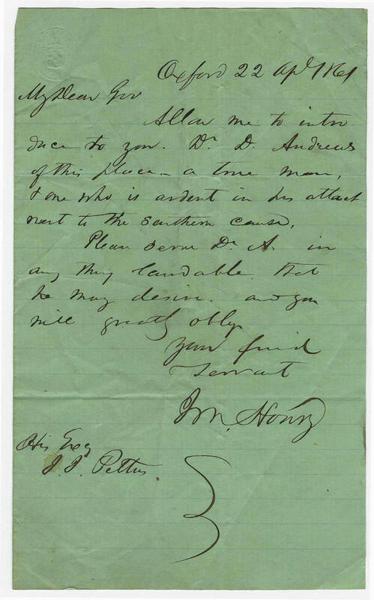 Oxford 22 Apl 1861
My Dear Gov
Allow me to intro
duce to you. Dr D. Andrews
of this place - a true man,
& one who is ardent in his attach
ment to the southern cause.
Please serve Dr A. in
any thing laudable that
he may desire. and you
will greatly oblige
Your friend
Servant
His Excy
J. J. Pettus